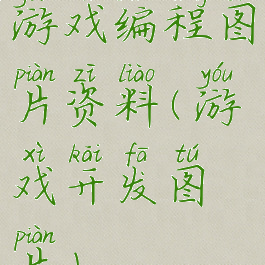 游戏编程图
piàn zī liào yóu
片资料(游
xì kāi fā tú
戏开发图
piàn
片)